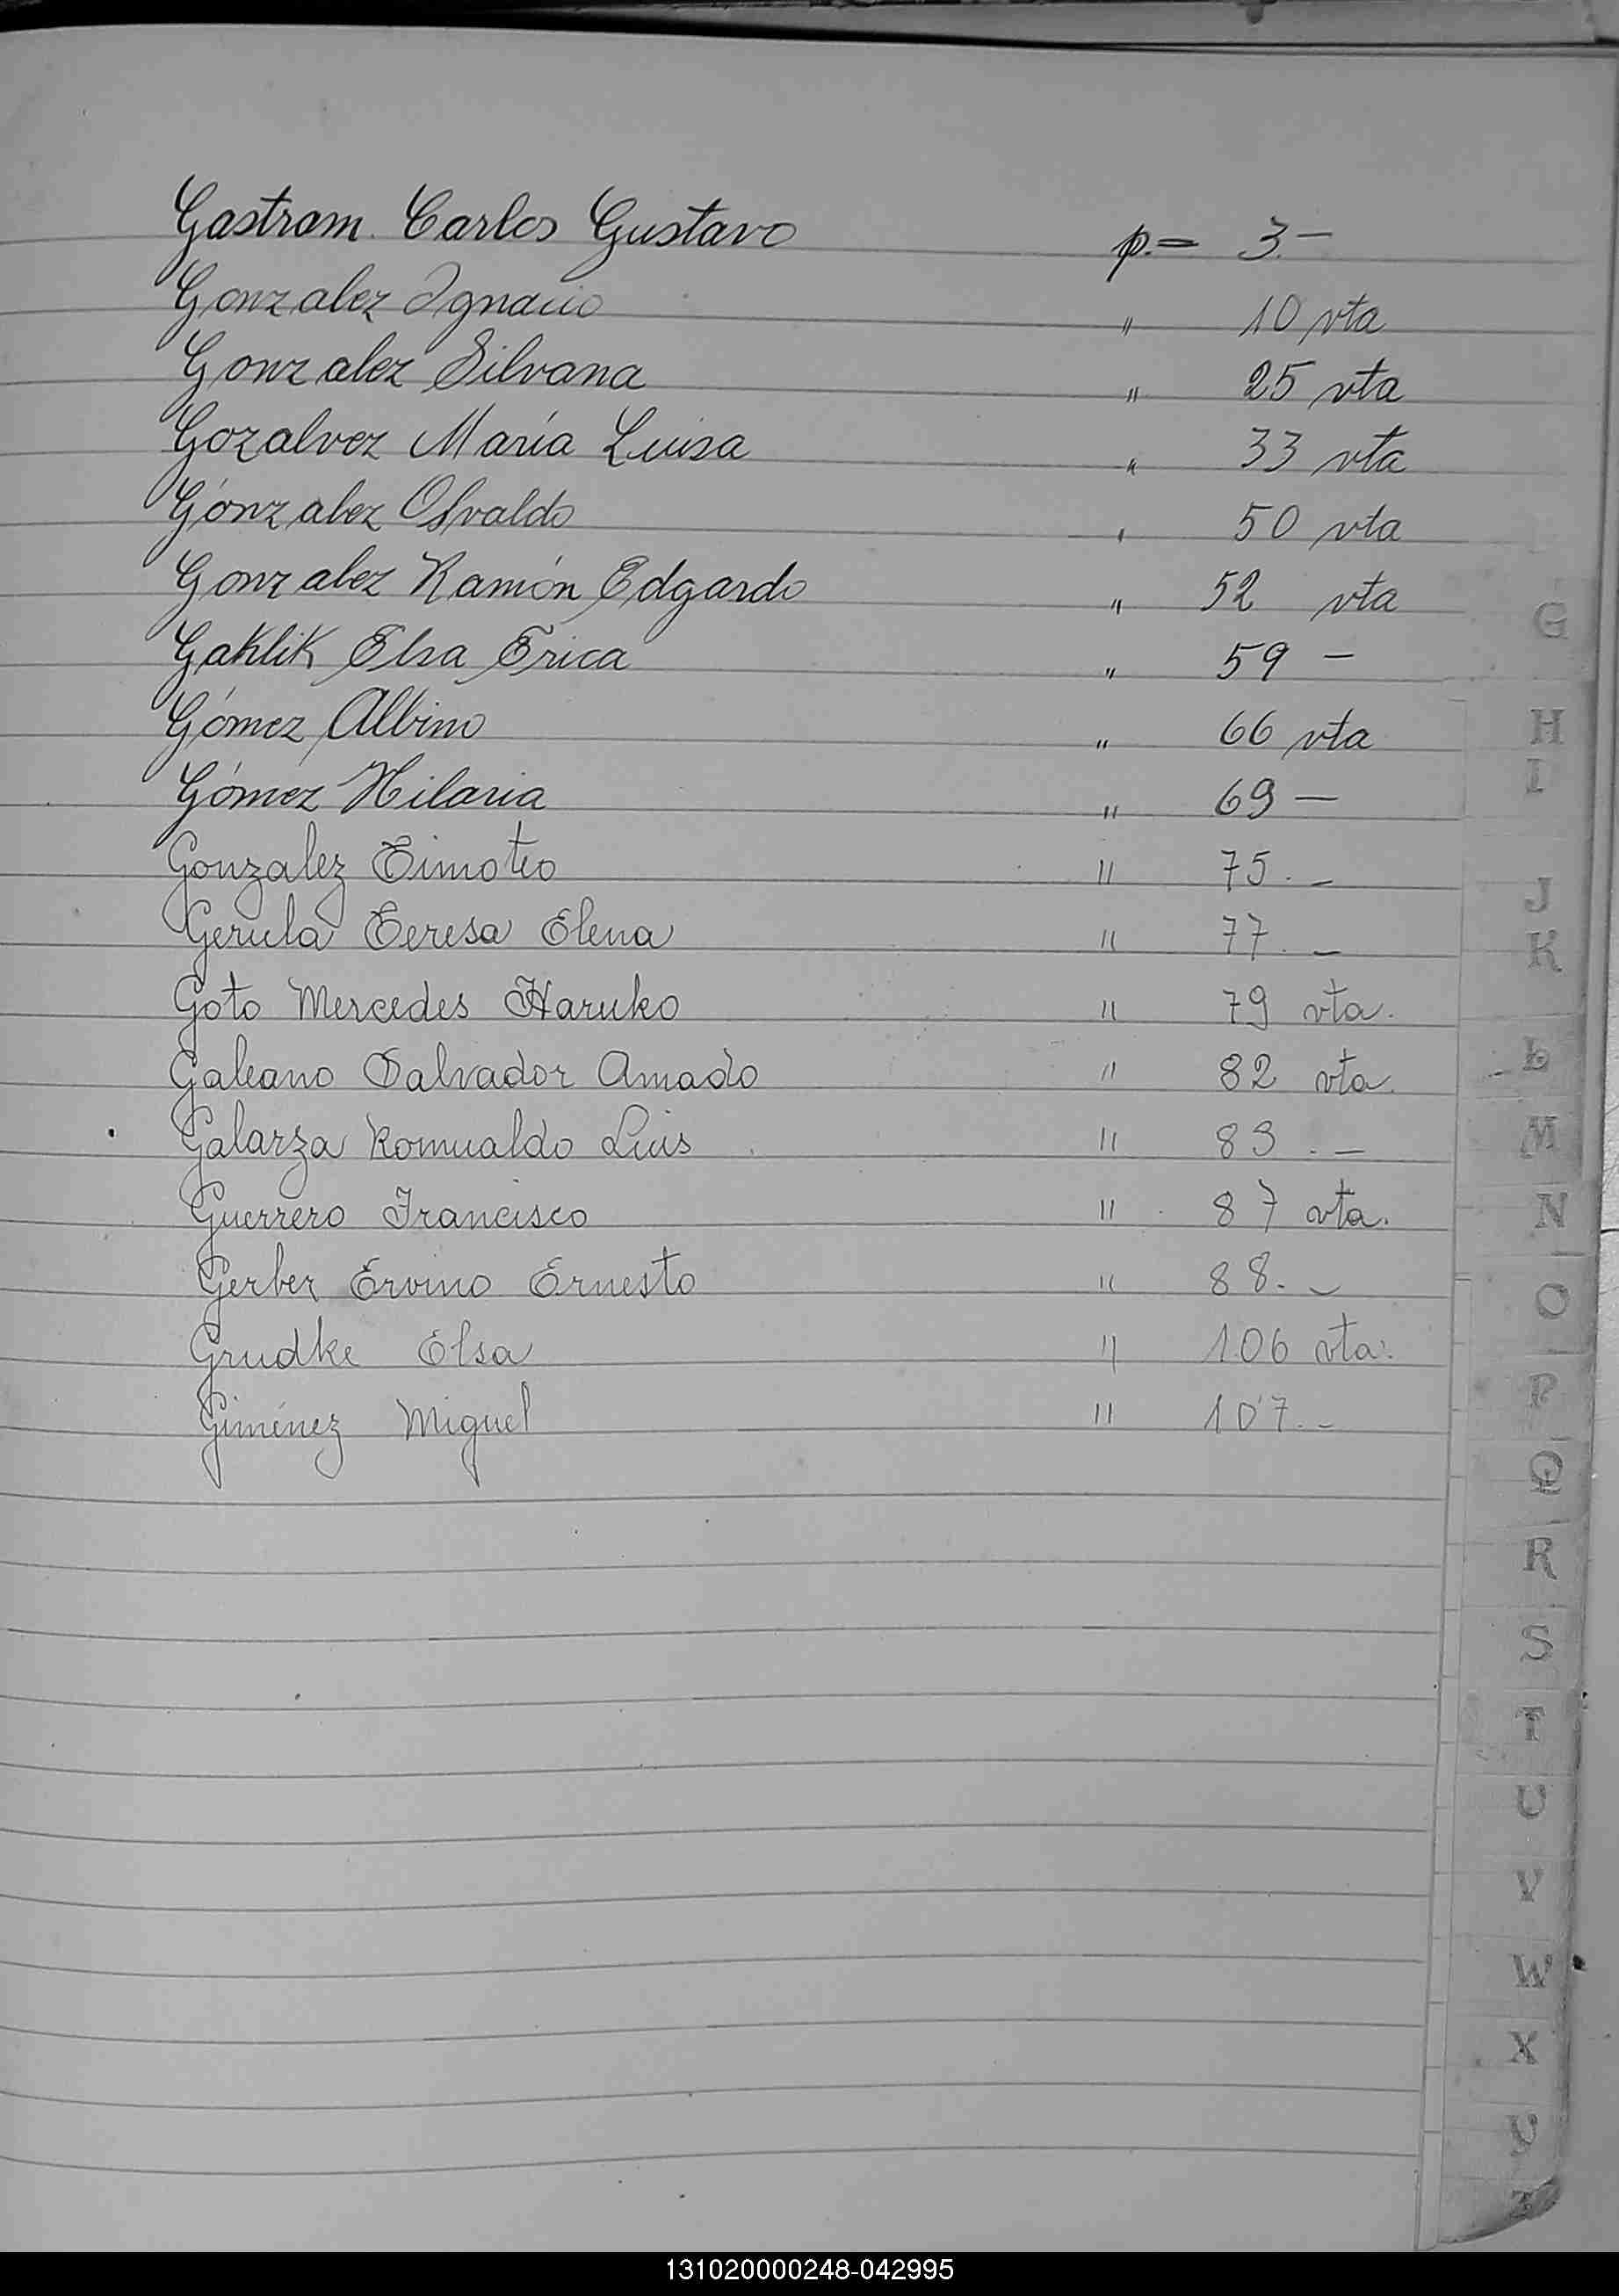 Gastram. Carlos Gustavo p.= 3.-
Gonzalez Ignacio " 10 vta
Gonzalez Silvana " 25 vta
Gozalvez María Luisa " 33 vta
Gónzalez Osvaldo " 50 vta
Gonzalez Ramón Edgardo " 52 vta
Gaklik Elsa Erica " 59 -
Gómez Albino " 66 vta
Gómez Hilaria " 69 -
Gonzalez Timoteo " 75.-
Gerula Teresa Elena " 77.-
Goto Mercedes Haruko " 79 vta.
Galeano Salvador Amado " 82 vta.
Galarza Romualdo Luis " 83.-
Guerrero Francisco " 87 vta.
Gerber Ervino Ernesto " 88.-
Grudke Elsa " 106 vta.
Giménez Miguel " 107.-
G
H
I
J
K
L
M
N
O
P
Q
R
S
T
U
V
W
X
Y
Z
131020000248-042995